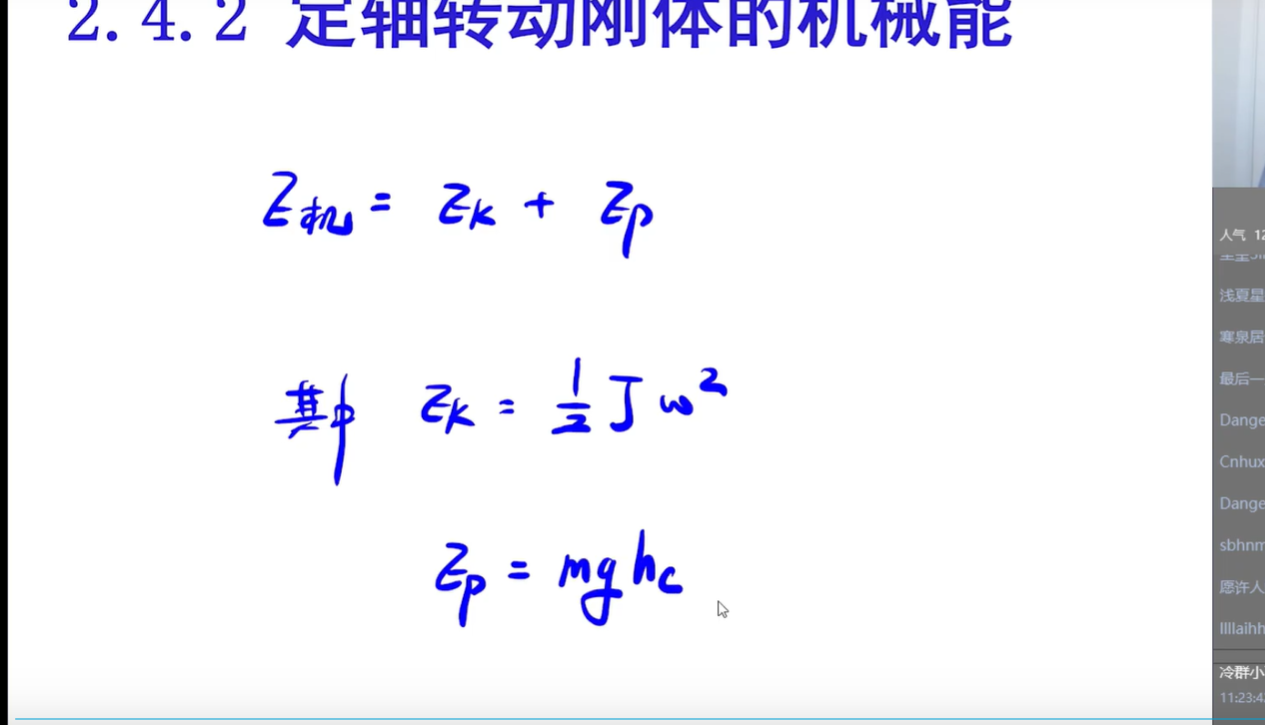 2.4.2 定轴转动刚体的机械能
E机 = Ek + Ep
其中 Ek = 1/2 J ω²
Ep = mghc
人气 12
浅夏星
寒泉居
最后一
Dange
Cnhux
Dange
sbhnm
愿许人
llllaihh
冷群小
11:23:4